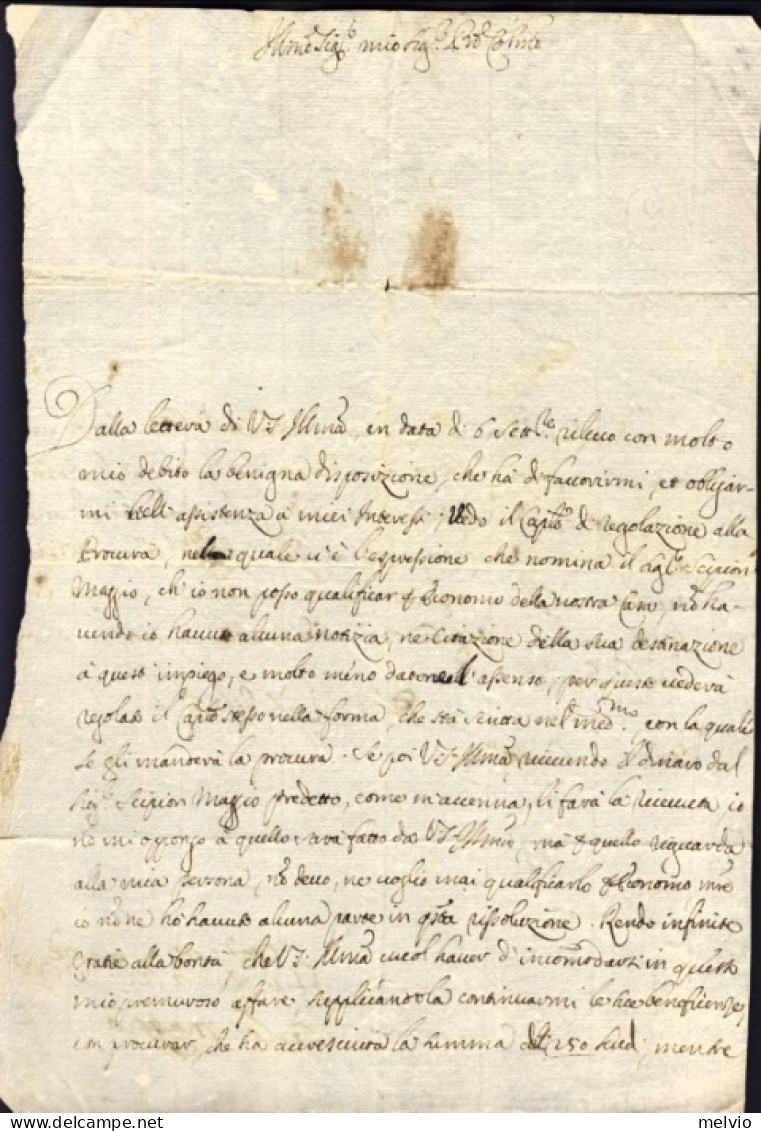 Illmo Sigr. mio Sigr. Prõ Colmo
Dalla lettera di V.S. Illma, in data di 6 Settre. rilevo con molto
mio debito la benigna disposizione, che hà di favorirmi, et obligar-
mi nell'assistenza à miei Interessi; Vedo il Capto. di regolazione alla
Procura, nella quale vi è l'espressione che nomina il Sigr. Scipion
Maggio, ch'io non posso qualificar p Economo della nostra Casa, nõ ha-
vendo io havuto alcuna notizia, ne Citazione della sua destinazione
à questo impiego, e molto meno datone l'assenso, per questo vederà
regolato il Capto. stesso nella forma, che stà scritta nel medmo. con la quale
se gli manderà la procura. Se poi V.S. Illma, ricevendo il dinaro dal
Sigr. Scipion Maggio predetto, come m'accenna, li farà la ricevuta, io
nõ mi oppongo à quello sarà fatto da V.S. Illma, mà p quello riguarda
alla mia persona, nõ devo, ne voglio mai qualificarlo p Economo mtre
io nõ ne hò havuto alcuna parte in qsta rissoluzione. Rendo infinite
gratie alla bontà, che V.S. Illma haver d'incomodarsi in questo
mio premuroso affare, supplicandola continuarmi le sue beneficenze,
con procurar, che sia accresciuta la summa delli 250 scudi, mentre
melvio